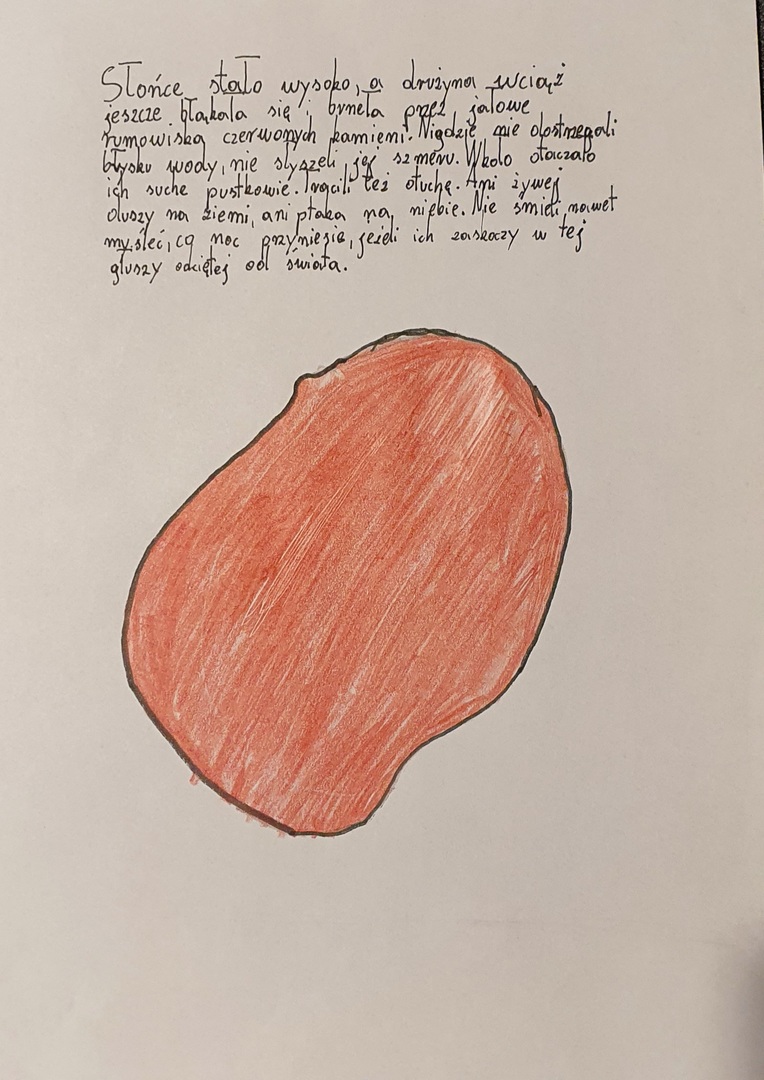 Słońce stało wysoko, a drużyna wciąż
jeszcze błąkala się i brnęła przez jałowe
rumowiska czerwonych kamieni. Nigdzie nie dostrzegali
błysku wody, nie słyszeli jej szmeru. Wkoło otaczało
ich suche pustkowie. Tracili też otuchę. Ani żywej
duszy na ziemi, ani ptaka na niebie. Nie śmieli nawet
myśleć, co noc przyniesie, jeżeli ich zaskoczy w tej
głuszy odciętej od świata.